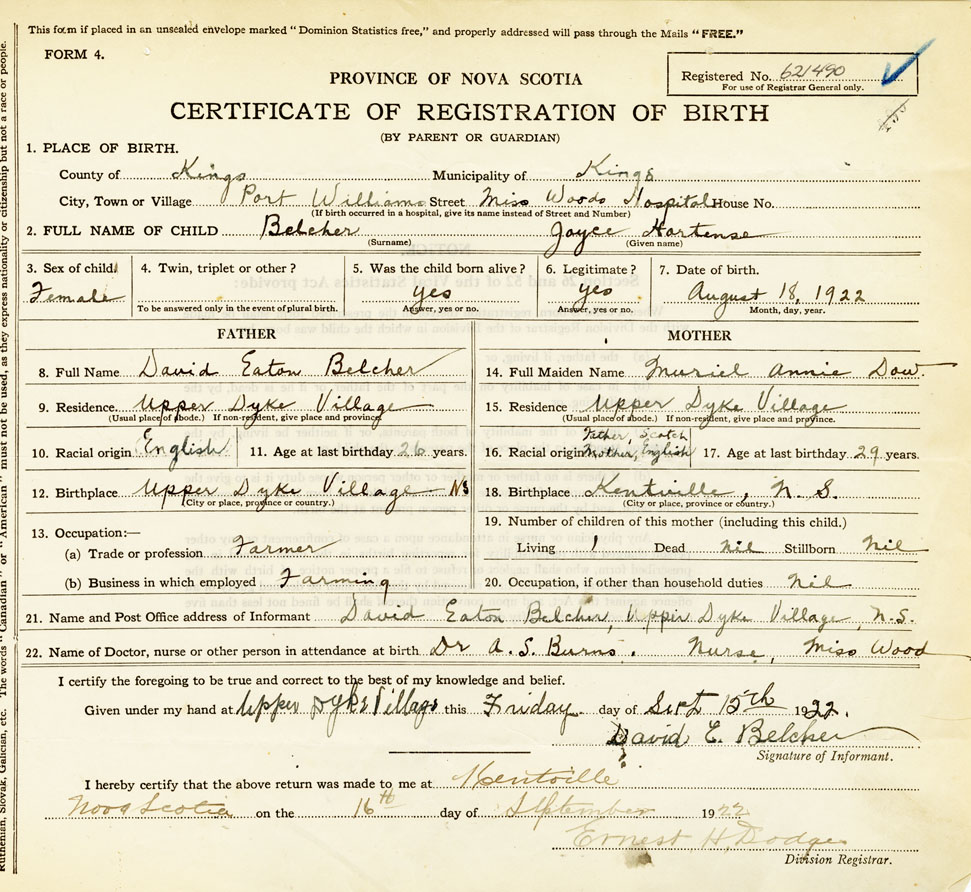 This form if placed in an unsealed envelope marked "Dominion Statistics free," and properly addressed will pass through the Mails "FREE."
FORM 4.
Registered No. 621490
For use of Registrar General only.
PROVINCE OF NOVA SCOTIA
CERTIFICATE OF REGISTRATION OF BIRTH
(BY PARENT OR GUARDIAN)
1. PLACE OF BIRTH.
County of Kings Municipality of Kings
City, Town or Village Port Williams Street Miss Woods Hospital House No.
(If birth occurred in a hospital, give its name instead of Street and Number)
2. FULL NAME OF CHILD Belcher Joyce Hortense
(Surname) (Given name)
3. Sex of child. 4. Twin, triplet or other? 5. Was the child born alive? 6. Legitimate? 7. Date of birth.
Female yes yes August 18, 1922
To be answered only in the event of plural birth. Answer, yes or no. Answer, yes or no. Month, day, year.
FATHER
8. Full Name David Eaton Belcher
9. Residence Upper Dyke Village
(Usual place of abode.) If non-resident, give place and province
10. Racial origin English 11. Age at last birthday 26 years.
12. Birthplace Upper Dyke Village NS
(City or place, province or country.)
13. Occupation:—
(a) Trade or profession Farmer
(b) Business in which employed Farming
MOTHER
14. Full Maiden Name Muriel Annie Dow.
15. Residence Upper Dyke Village
(Usual place of abode.) If non-resident, give place and province.
Father, Scotch
16. Racial origin Mother, English 17. Age at last birthday 29 years.
18. Birthplace Kentville, N.S.
(City or place, province or country.)
19. Number of children of this mother (including this child.)
Living 1 Dead nil Stillborn Nil
20. Occupation, if other than household duties Nil
21. Name and Post Office address of Informant David Eaton Belcher, Upper Dyke Village, N.S.
22. Name of Doctor, nurse or other person in attendance at birth Dr A. S. Burns. Nurse, Miss Wood
I certify the foregoing to be true and correct to the best of my knowledge and belief.
Given under my hand at Upper Dyke Village this Friday day of Sept 15th 1922.
David E. Belcher
Signature of Informant.
I hereby certify that the above return was made to me at Kentville
Nova Scotia on the 16th day of September 1922
Ernest H. Dodge
Division Registrar.
Ruthenian, Slovak, Galician, etc. The words "Canadian" or "American" must not be used, as they express nationality or citizenship but not a race or people.